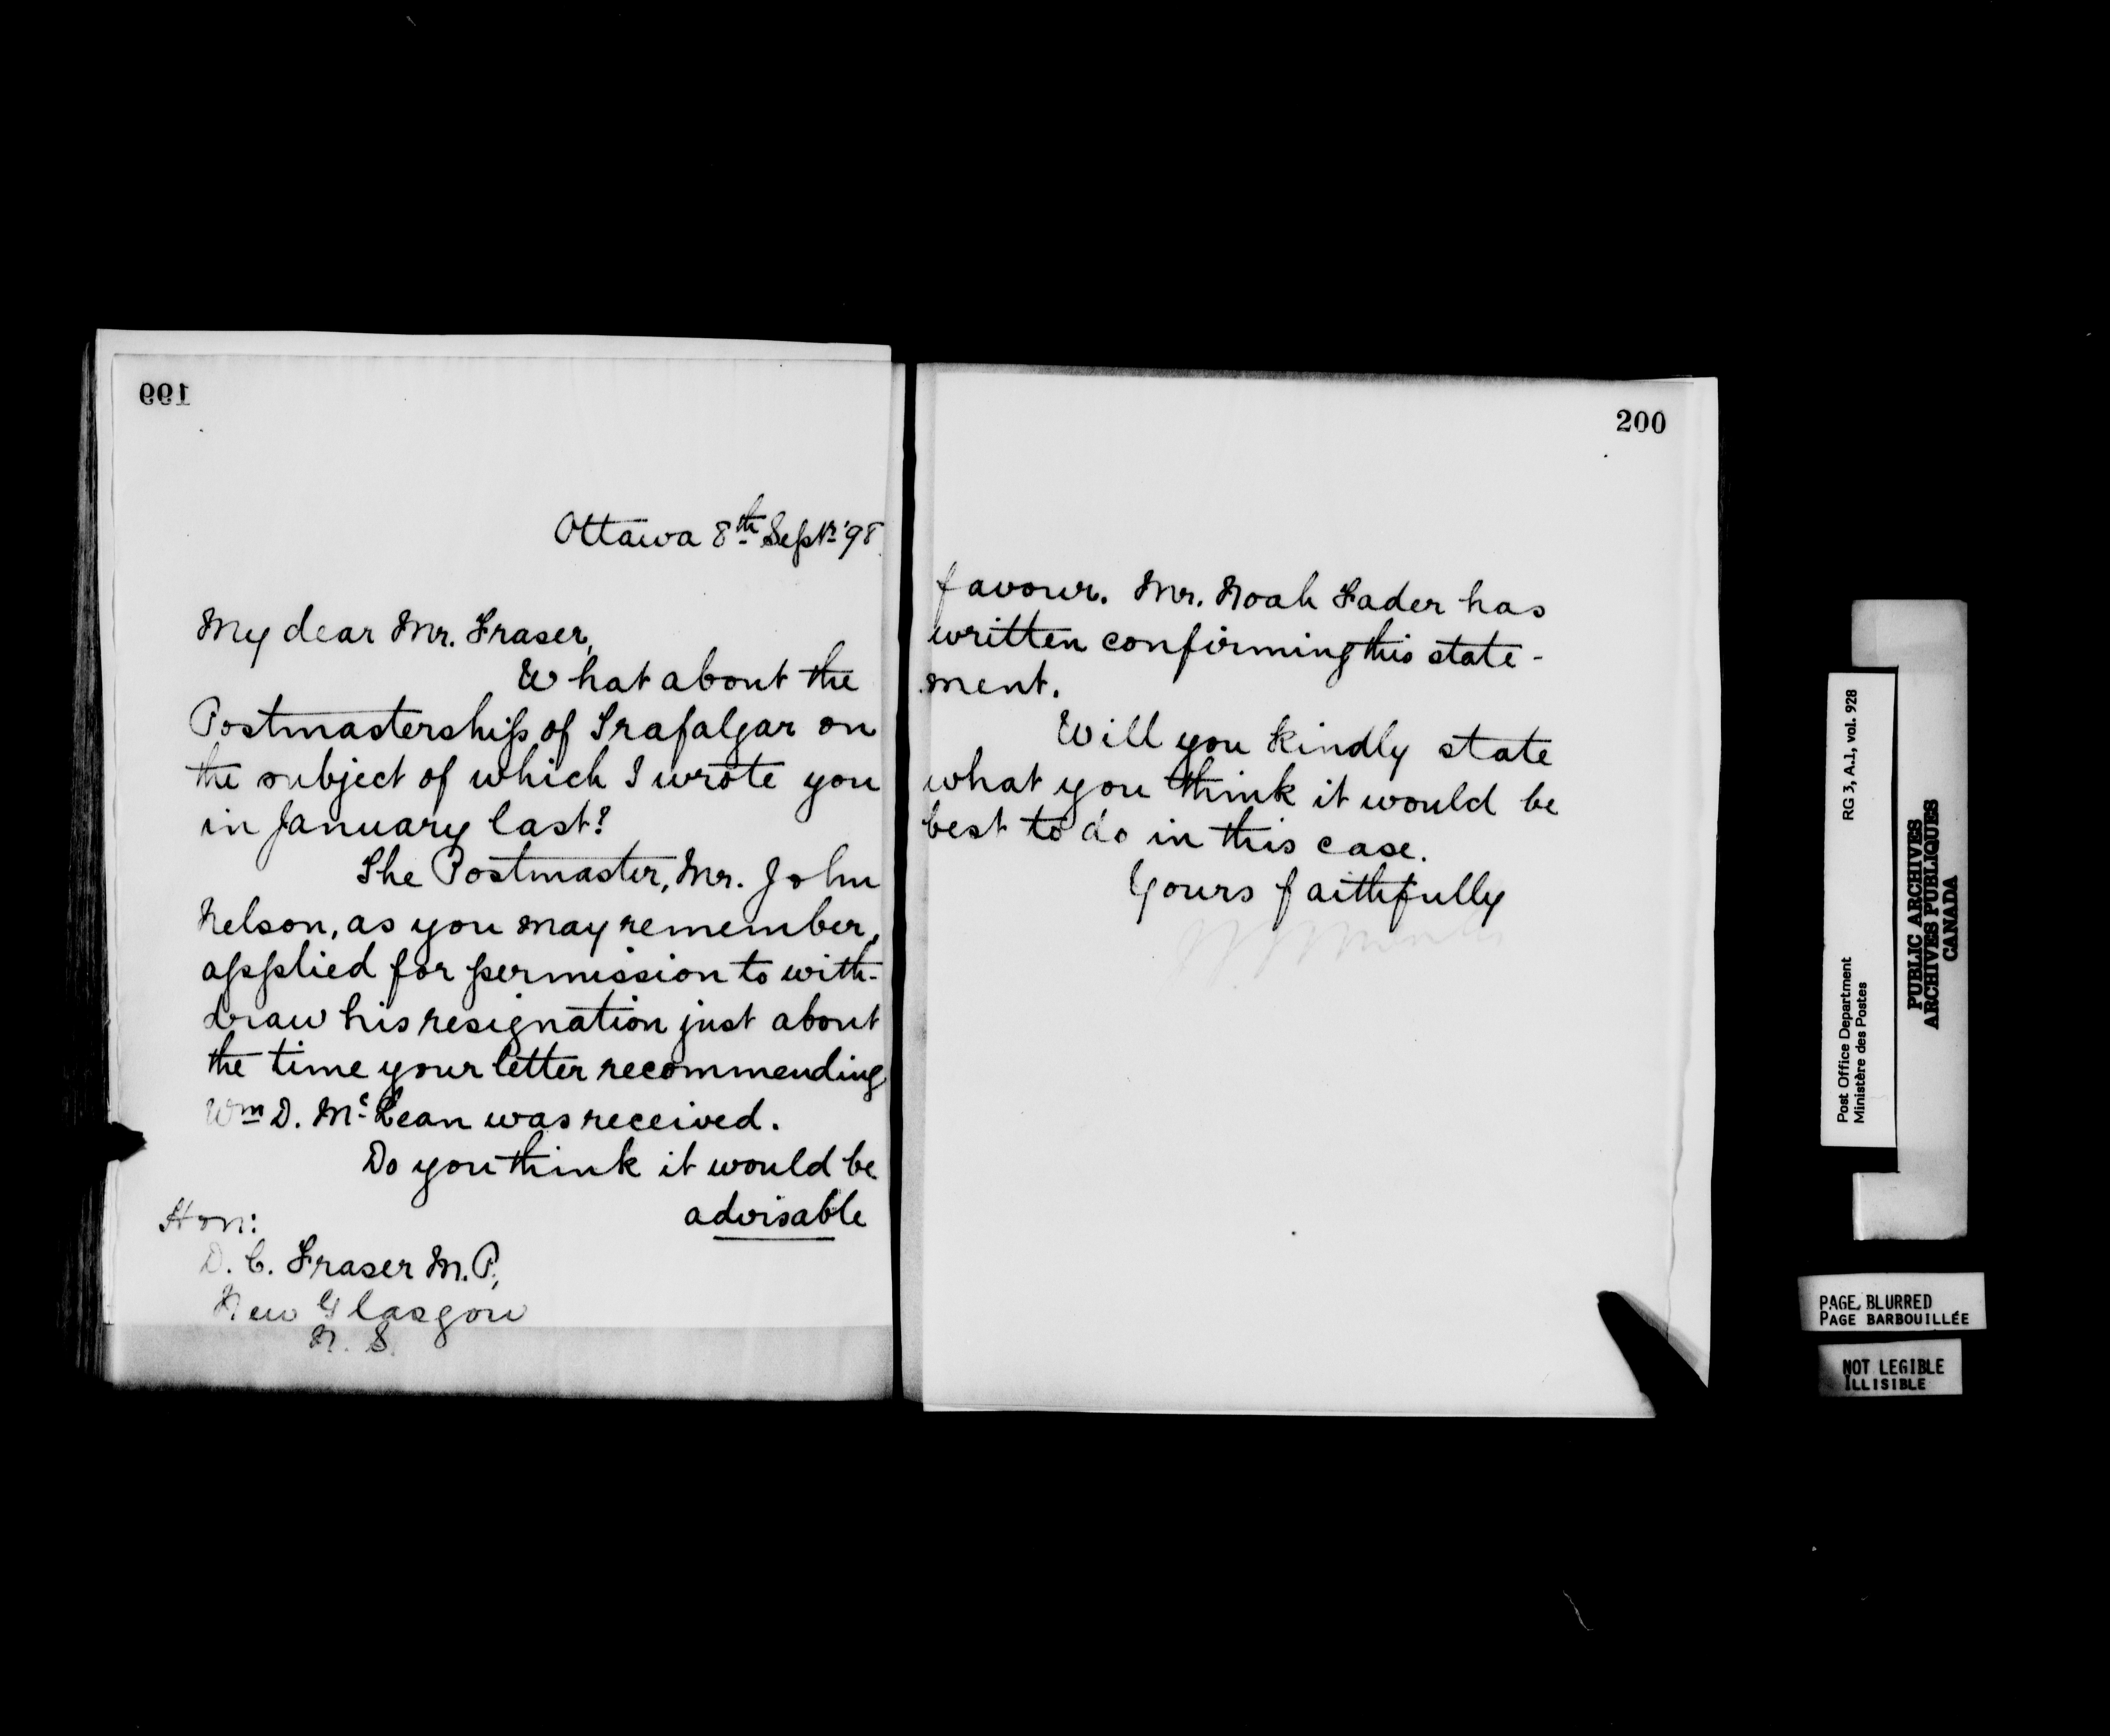 199
Ottawa 8th Septr. '98
My dear Mr. Fraser,
What about the
Postmastership of Trafalgar on
the subject of which I wrote you
in January last?
The Postmaster, Mr. John
Nelson, as you may remember,
applied for permission to with-
draw his resignation just about
the time your letter recommending
Wm D. McLean was received.
Do you think it would be
advisable
Hon:
D. C. Fraser M.P.,
New Glasgow
N. S.
200
favour. Mr. Noah Fader has
written confirming this state-
ment.
Will you kindly state
what you think it would be
best to do in this case.
Yours faithfully
Post Office Department
Ministère des Postes
RG 3, A.1, vol. 928
PUBLIC ARCHIVES
ARCHIVES PUBLIQUES
CANADA
PAGE BLURRED
PAGE BARBOUILLÉE
NOT LEGIBLE
ILLISIBLE